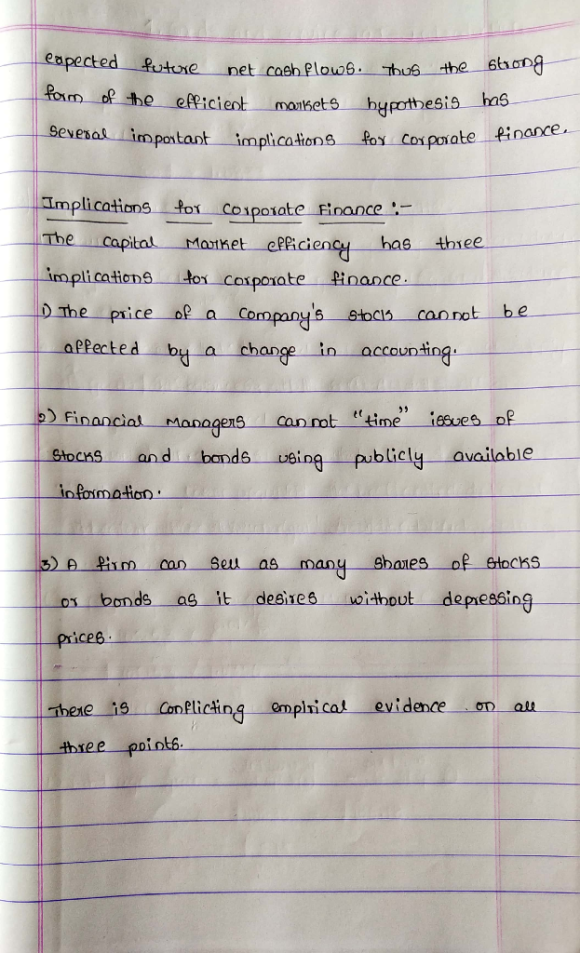 expected future net cashflows. Thus the strong
form of the efficient markets hypothesis has
several important implications for corporate finance.
Implications for Corporate Finance :-
The capital Market efficiency has three
implications for corporate finance.
1) The price of a company's stocks cannot be
affected by a change in accounting.
2) Financial Managers cannot "time" issues of
stocks and bonds using publicly available
information.
3) A firm can sell as many shares of stocks
or bonds as it desires without depressing
prices.
There is conflicting empirical evidence on all
three points.